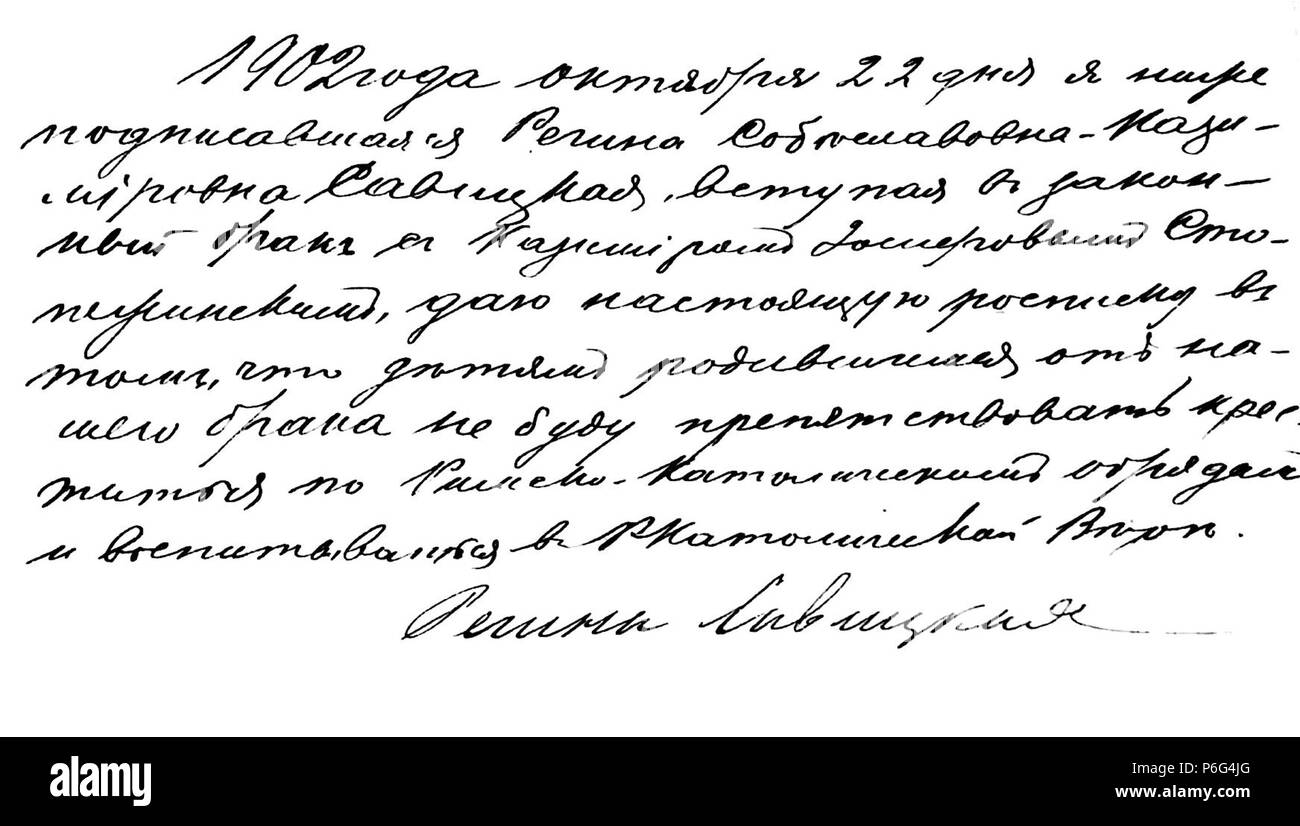 1902 года октября 22 дня я ниже
подписавшаяся Регина Собѣславовна-Кази-
мiровна Савицкая, вступая въ закон-
ный бракъ съ Казимiромъ Сто-
даю настоящую росписку въ
томъ, что дѣтямъ родившимся отъ на-
шего брака не буду препятствовать крес-
титься по Римско-Католическимъ обрядам
и воспитываться въ РКатолической Вѣрѣ.
Регина Савицкая
alamy stock photo
P6G4JG
www.alamy.com